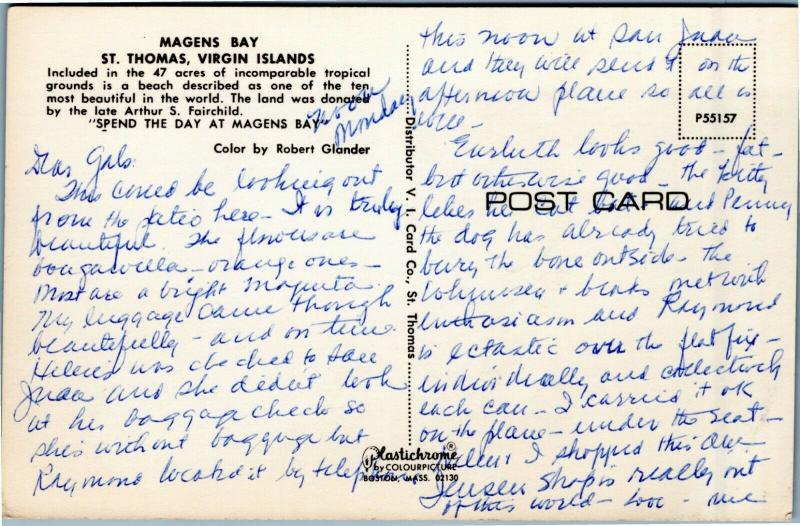 MAGENS BAY
ST. THOMAS, VIRGIN ISLANDS
Included in the 47 acres of incomparable tropical
grounds is a beach described as one of the ten
most beautiful in the world. The land was donated
by the late Arthur S. Fairchild.
"SPEND THE DAY AT MAGENS BAY"
Color by Robert Glander
noon
Monday
Dear Gals:
This could be looking out
from the patio here - It is truly
beautiful. The flowers are
bougavvilla - orange ones -
Most are a bright Magenta.
My luggage came through
beautifully - and on time.
was checked to San
Juan and she didn't look
at her baggage check so
she's without baggage but
Raymond located it by telephone
Distributor V. I. Card Co., St. Thomas
Plastichrome®
by COLOURPICTURE
BOSTON, MASS. 02130
POST CARD
P55157
this noon at San Juan
and they will send it on the
afternoon plane so all is
well -
looks good - fat -
but otherwise good - the kitty
likes her and Penny
the dog has already tried to
bury the bone outside - the
+ books met with
Enthusiasm and Raymond
is ectastic over the flat fix -
individually and collectively
each can - I carried it ok
on the plane - under the seat -
Helen & I shopped this
Jensen Shop is really out
of this world - Love - me